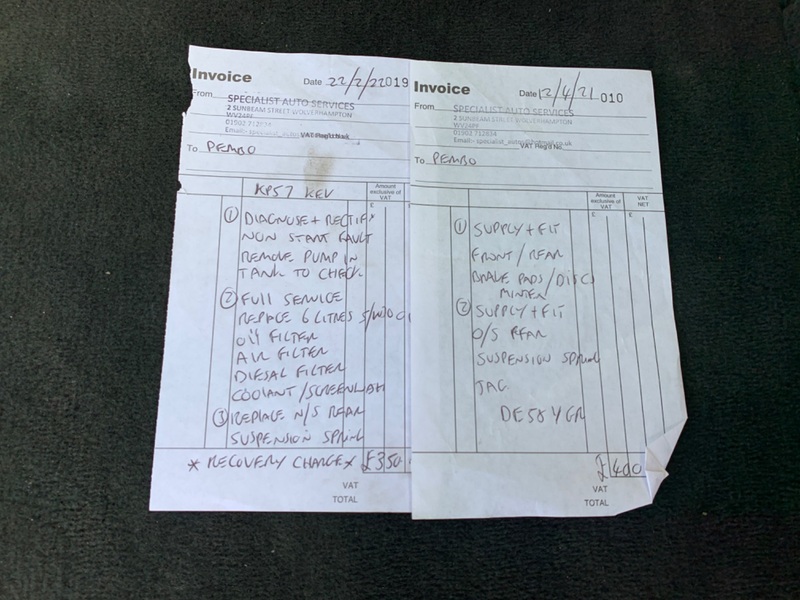 Invoice
Date 22/2/22019
From
SPECIALIST AUTO SERVICES
2 SUNBEAM STREET WOLVERHAMPTON
WV24PF
01902 712834
Email:- specialist_
VAT Reg'd No.
To PEMBO
KP57 KEV
Amount
exclusive of
VAT
£
① DIAGNOSE + RECTIFY
NON START FAULT
REMOVE PUMP IN
TANK TO CHECK
② FULL SERVICE
REPLACE 6 LITRES 5/W30
OIL FILTER
AIR FILTER
DIESAL FILTER
COOLANT/SCREENWASH
③ REPLACE N/S REAR
SUSPENSION SPRING
* RECOVERY CHARGE * £350
VAT
TOTAL
Invoice
Date 12/4/21 010
From
SPECIALIST AUTO SERVICES
2 SUNBEAM STREET WOLVERHAMPTON
WV24PF
01902 712834
Email:- specialist_
VAT Reg'd No.
To PEMBO
Amount
exclusive of
VAT
VAT
NET
£ £
① SUPPLY + FIT
FRONT / REAR
BRAKE PADS / DISCS
MINTEX
② SUPPLY + FIT
O/S REAR
SUSPENSION SPRING
JAG
DE58 YGR
£400
VAT
TOTAL